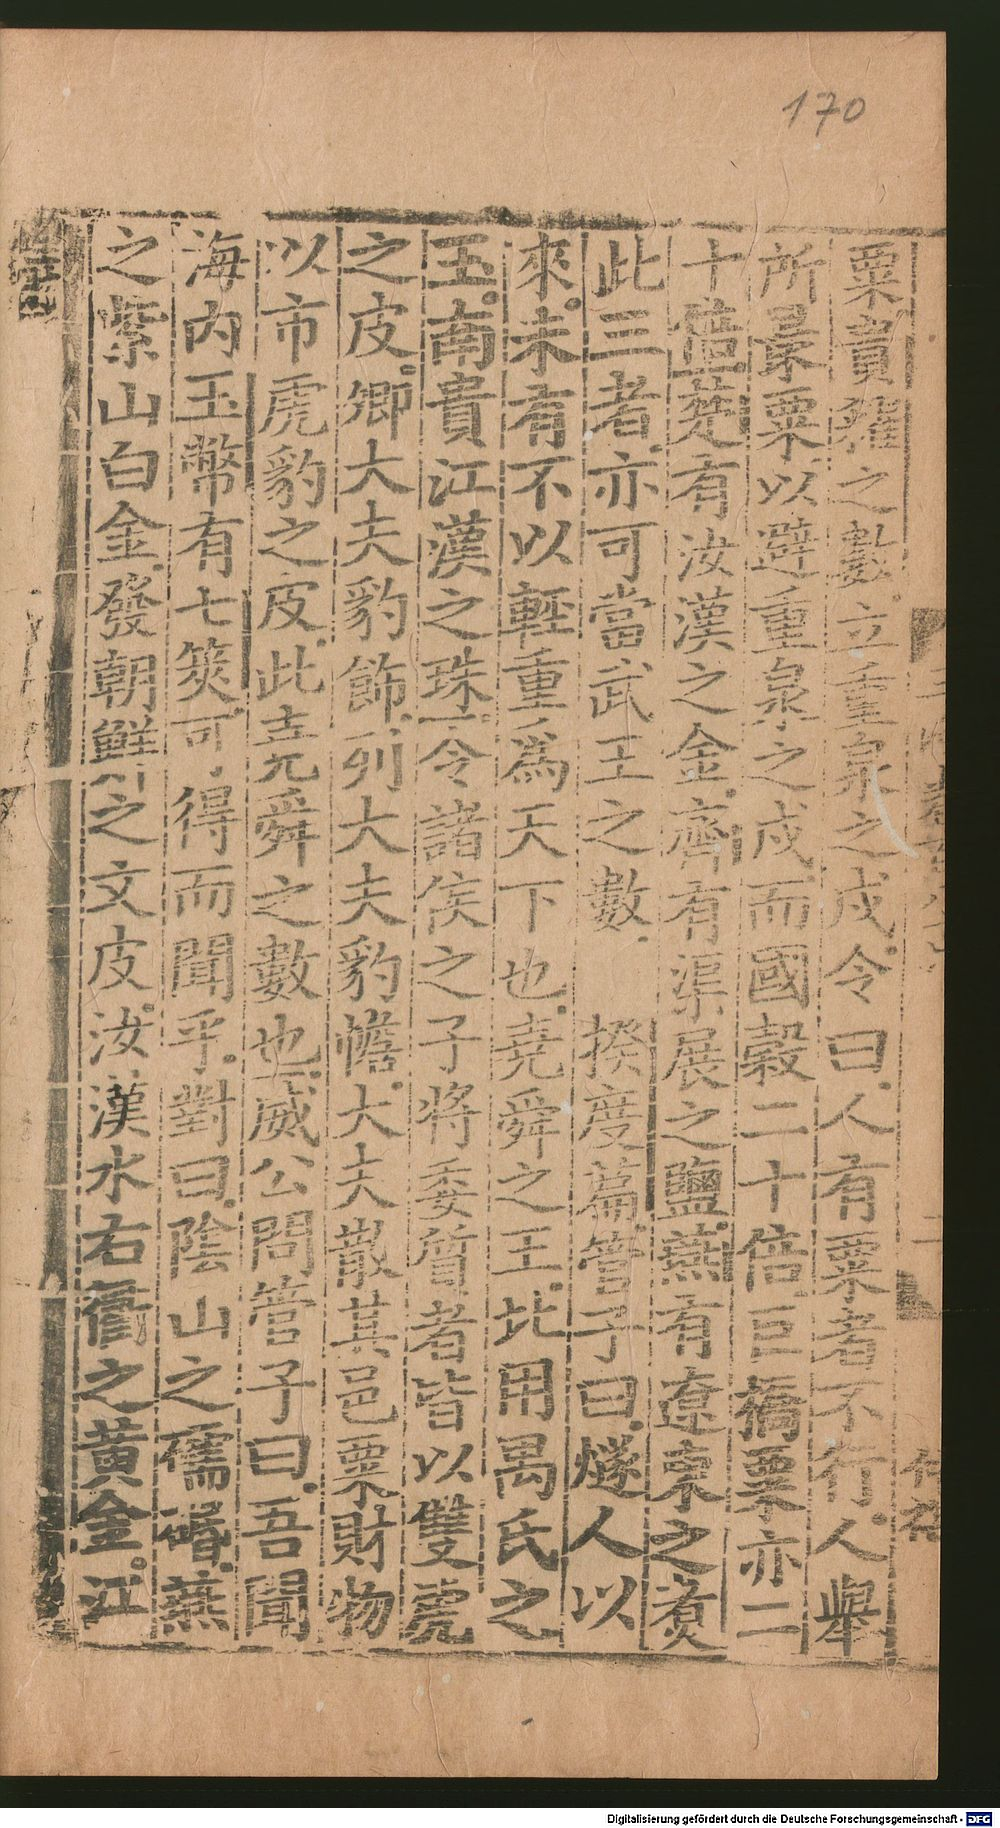 170
粟賁糴之數立重泉之戍令曰人有粟者不行人舉
所最粟以避重泉之戍而國穀二十倍巨橋粟亦二
十倍楚有汝漢之金齊有渠展之鹽燕有遼東之煑
此三者亦可當武王之數　揆度篇管子曰燧人以
來未有不以輕重爲天下也堯舜之王北用禺氏之
玉南貴江漢之珠令諸侯之子將委質者皆以雙虎
之皮卿大夫豹飾列大夫豹幨大夫散其邑粟財物
以市虎豹之皮此堯舜之數也威公問管子曰吾聞
海内玉幣有七筴可得而聞乎對曰陰山之礝碈燕
之紫山白金發朝鮮之文皮汝漢水右衢之黃金江
Digitalisierung gefördert durch die Deutsche Forschungsgemeinschaft - DFG